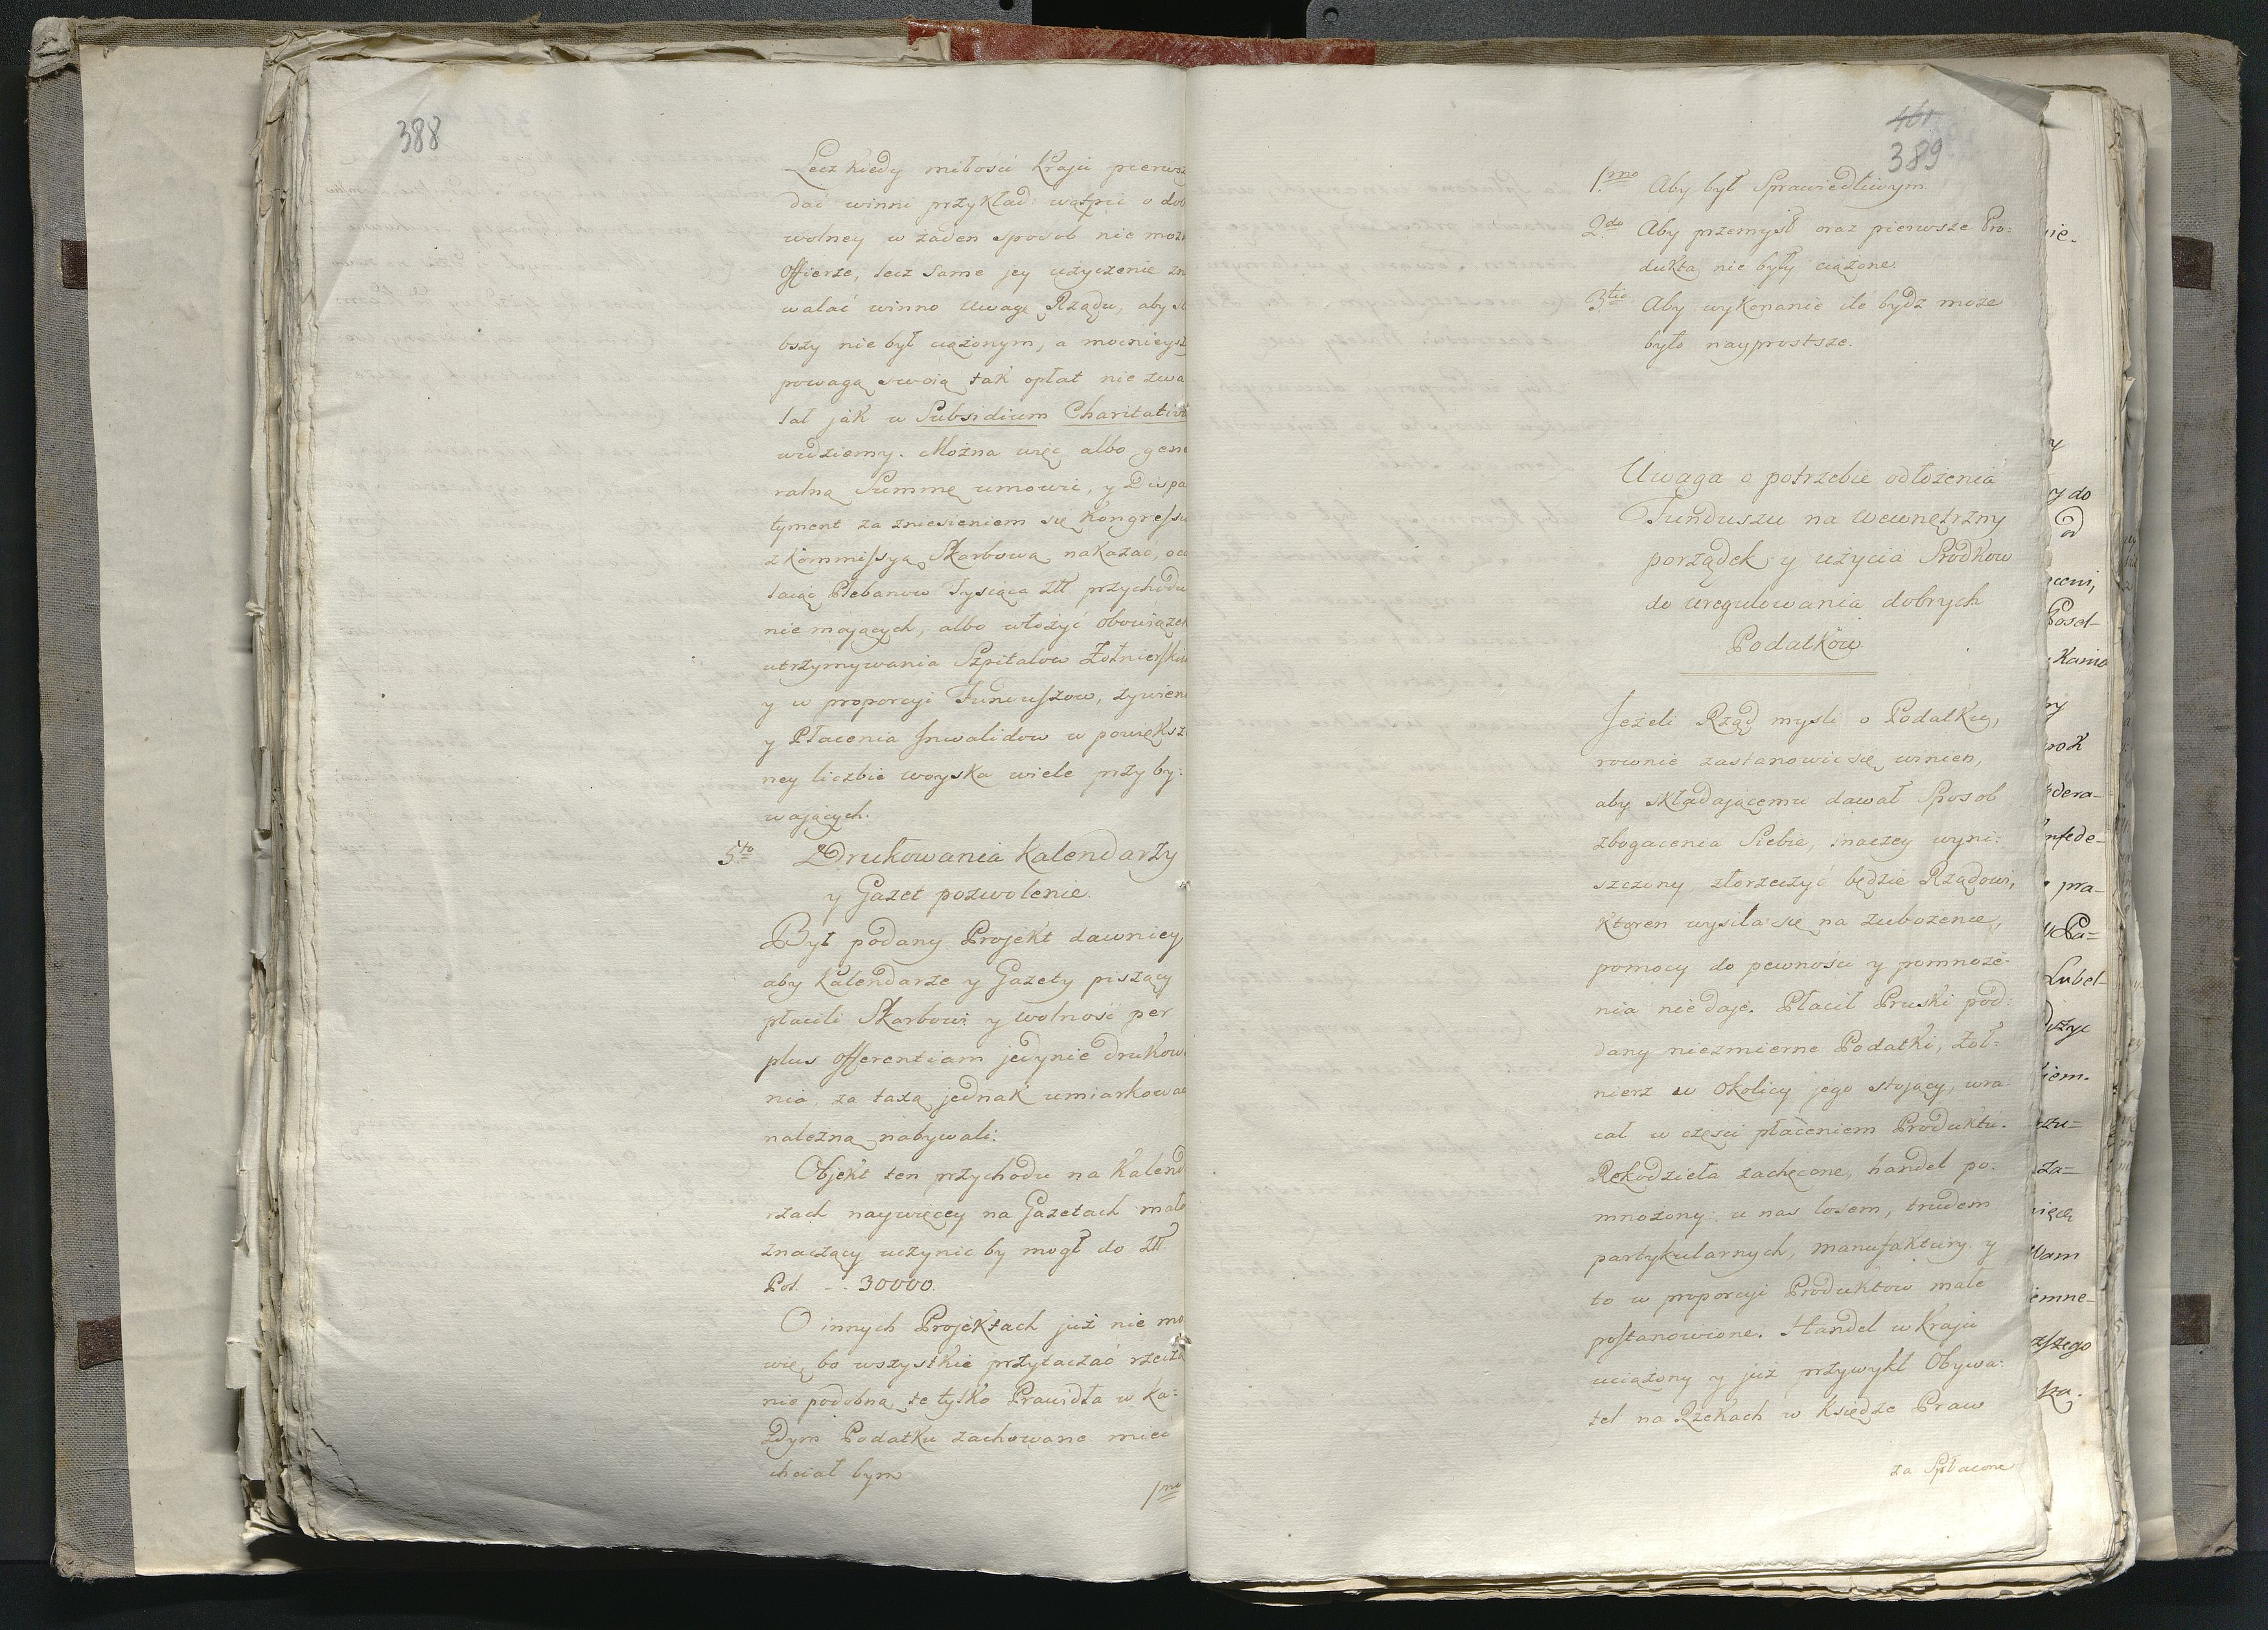 388
Lecz kiedy miłości Kraju pierwsz
dać winni przykład: wątpić o dob
wolney w żaden sposob nie możn
Offierze, lecz same jey użyczenie zn
walać winno uwagę Rządu, aby sł
bszy nie był ciążonym, a mocnieysz
powagą swoią tak opłat nie zwa
lał jak w Subsidium Charitativ
widziemy. Można więc albo gene
ralną Summę umowić, y Dispar
tyment za zniesieniem się Kongressu
z Kommissyą Skarbową nakazać, oca
laiąc Plebanow Tysiąca Złł przychodu
nie mających, albo włożyć obowiązek
utrzymywania Szpitalow Żołnierskich
y w proporcyi Funduszow, żywien
y Płacenia Inwalidow w powiększo
ney liczbie woyska wiele przyby:
wających.
5to Drukowania Kalendarzy
y Gazet pozwolenie.
Był podany Projekt dawniey,
aby Kalendarze y Gazety piszący
płacili Skarbowi y wolność per
plus offerentiam jedynie drukow
nia, za taxą jednak umiarkowan
należną nabywali.
Objekt ten przychodu na Kalend
rzach naywięcey na Gazetach mało
znaczący uczynić by mogł do Złł
Pol. -- 30000.
O innych Projektach już nie mo
wię, bo wszystkie przytaczać rzecza
niepodobna, te tylko Prawidła w ka:
żdym Podatku zachowane mieć
chciał bym
1mo
461
389
1mo Aby był Sprawiedliwym.
2do Aby przemysł oraz pierwsze Pro:
dukta nie były ciążone.
3tio Aby wykonanie ile bydz może
było nayprostsze.
Uwaga o potrzebie odłożenia
Funduszu na wewnętrzny
porządek y użycia Srodkow
do uregulowania dobrych
Podatkow
Jeżeli Rząd mysli o Podatku,
rownie zastanowić się winien,
aby składającemu dawał Sposob
zbogacenia Siebie, inaczey wyni:
szczony złorzeczyć będzie Rządowi,
ktoren wysila się na zubożenie,
pomocy do pewności y pomnoże:
nia nie daje. Płacił Pruski pod:
dany niezmierne Podatki, żoł:
nierz w okolicy jego stojący, wra
cał w części płaceniem Produktu.
Rękodzieła zachęcone, handel po:
mnożony: u nas losem, trudem
partykularnych, manufaktury y
to w proporcyi Produktow małe
postanowione. Handel w kraju
uciążony y już przywykł Obywa:
tel na Rzekach w Księdze Praw
za Spławne